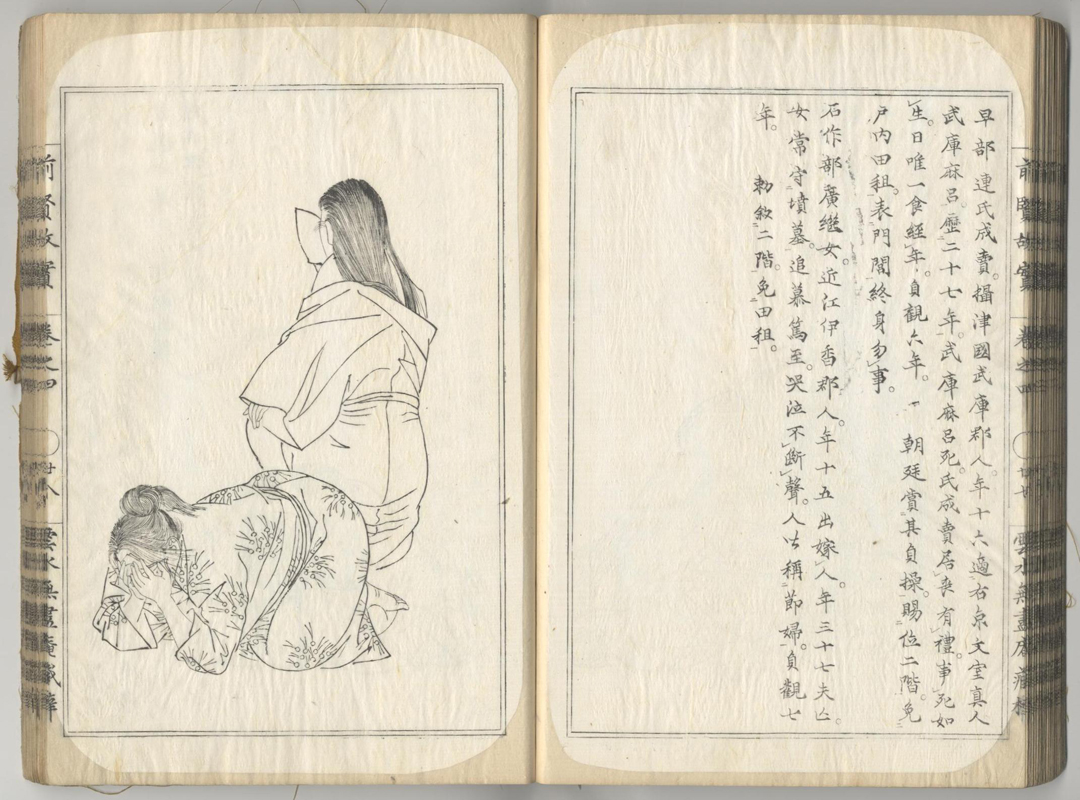 早部連氏成賣。攝津國武庫郡人。年十六適右京文室真人
武庫麻呂。歷二十七年。武庫麻呂死。氏成賣居喪有禮。事死如
生。日唯一食經年。貞觀六年。朝廷賞其貞操。賜位二階。免
戶內田租。表門閭終身勿事。
石作部廣繼女。近江伊香郡人。年十五出嫁人。年三十七夫亡。
女常守墳墓。追慕篤至。哭泣不斷聲。人以稱節婦。貞觀七
年。勅敘二階。免田租。
前賢故實 卷之四
雲水無盡庵藏梓